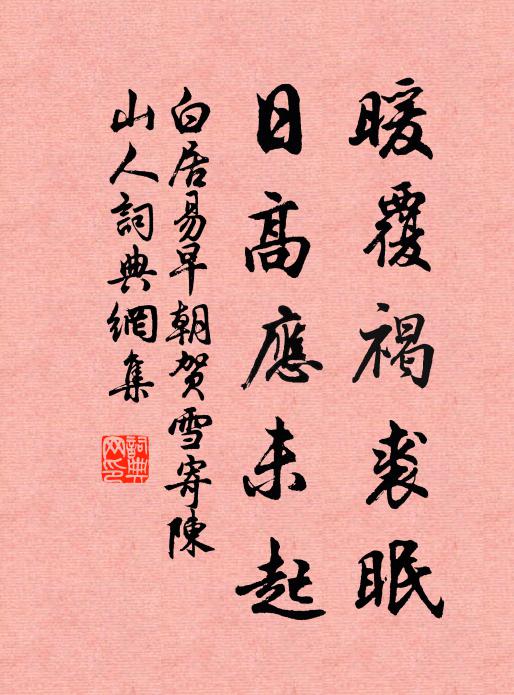 暖覆褐裘眠
日高應未起
白居易早朝賀雪寄陳
山人詞典網集
詞典
网印